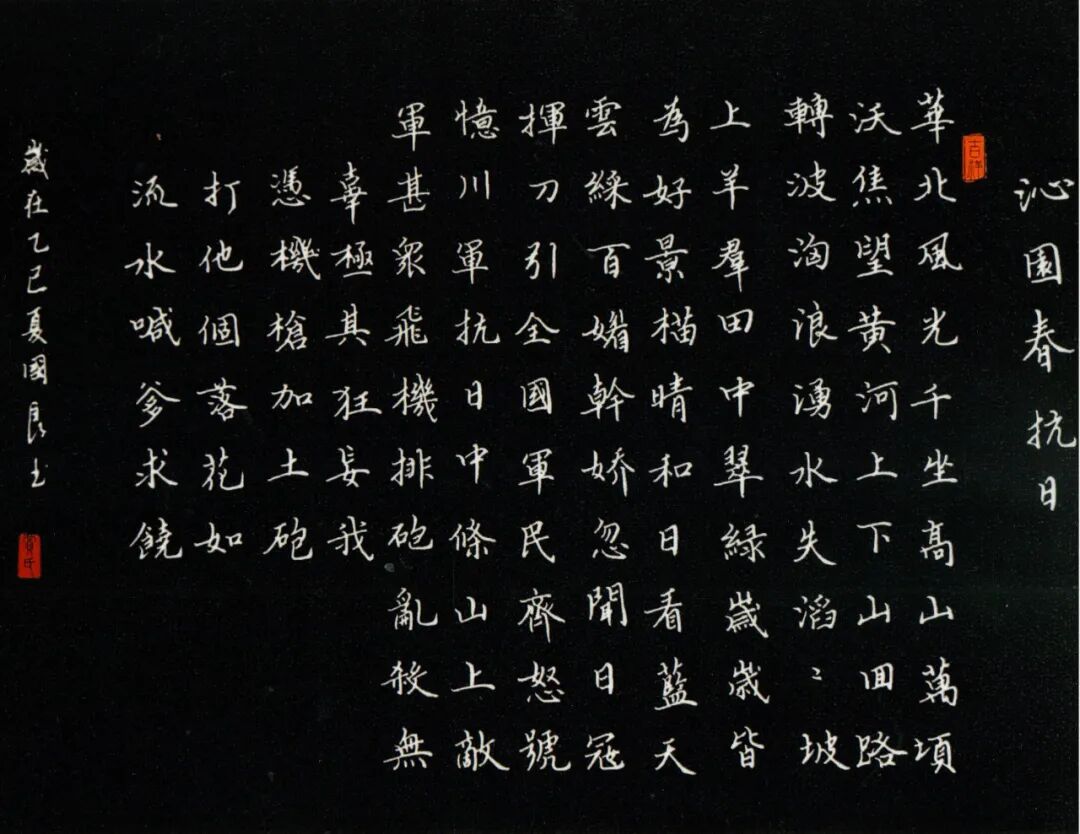 沁園春抗日
吉祥
華北風光千坐高山萬項
沃焦望黄河上下山回路
轉波洶浪湧水失滔〻坡
上羊羣田中翠綠歲歲皆
為好景描晴和日看藍天
雲綵百媚幹娇忽聞日冠
揮刀引全國軍民齊怒號
憶川軍抗日中條山上敵
軍甚衆飛機排砲亂殺無
辜極其狂妄我
憑機槍加土砲
打他個落花如
流水喊爹求饒
歲在乙巳夏國良书
賀氏